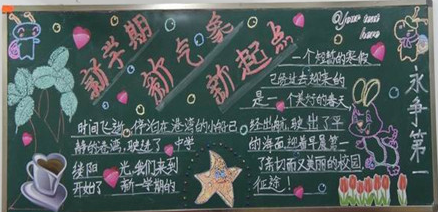 新学期
新气象
新起点
Your text
here
一个短暂的寒假
已经过去迎来的
是一个美好的春天
永争第一
时间飞逝,停泊在港湾的小船已
静的港湾,驶进了
经出航,驶出了平
的海面,迎着早晨第一
缕阳 光,我们来到
了亲切而又美丽的校园
开始了 新一学期的
征途!